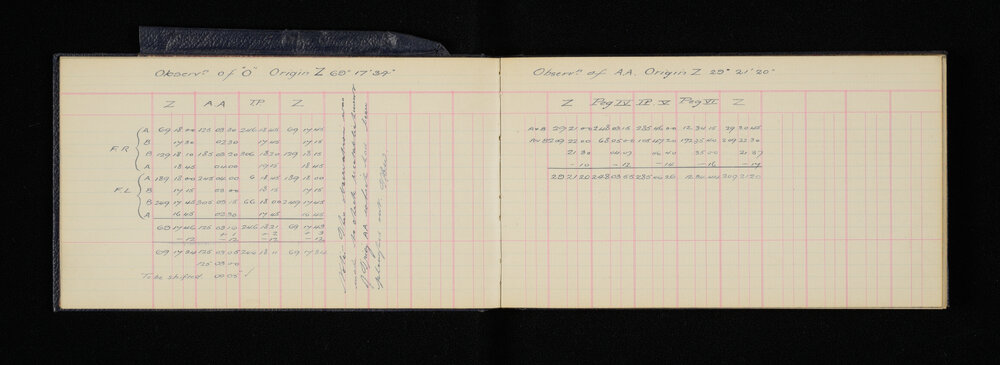 Observⁿ of "O" Origin Z 69° 17' 34"
Z AA TP Z
F.R A 69 18 00 125 03 30 246 18 45 69 17 45
B 17 30 02 30 17 45 17 15
B 129 18 10 185 03 20 306 18 30 129 18 15
A 18 45 04 00 19 15 18 45
F.L A 189 18 00 245 04 00 6 18 45 189 18 00
B 17 15 03 00 18 15 17 15
B 249 17 45 305 03 15 66 18 00 249 17 45
A 16 45 02 30 17 45 16 45
69 17 46 125 03 10 246 18 21 69 17 43
-12 -12 -12 -12
69 17 34 125 03 05 246 18 11 69 17 34
125 03 00
To be shifted 00 05 ✓
Note: This observation was
made to check establishment
of Peg AA which has been
Observⁿ of AA. Origin Z 29° 21' 20"
Z Peg IV IP. V Peg VI Z
A & B 29 21 00 248 03 15 285 46 00 12 34 15 29 20 45
A & B 209 22 00 68 05 00 105 47 20 192 35 40 209 22 30
21 30 04 07 46 40 35 00 21 37
-10 -12 -14 -16 -17
29 21 20 248 03 55 285 46 26 12 34 44 209 21 20